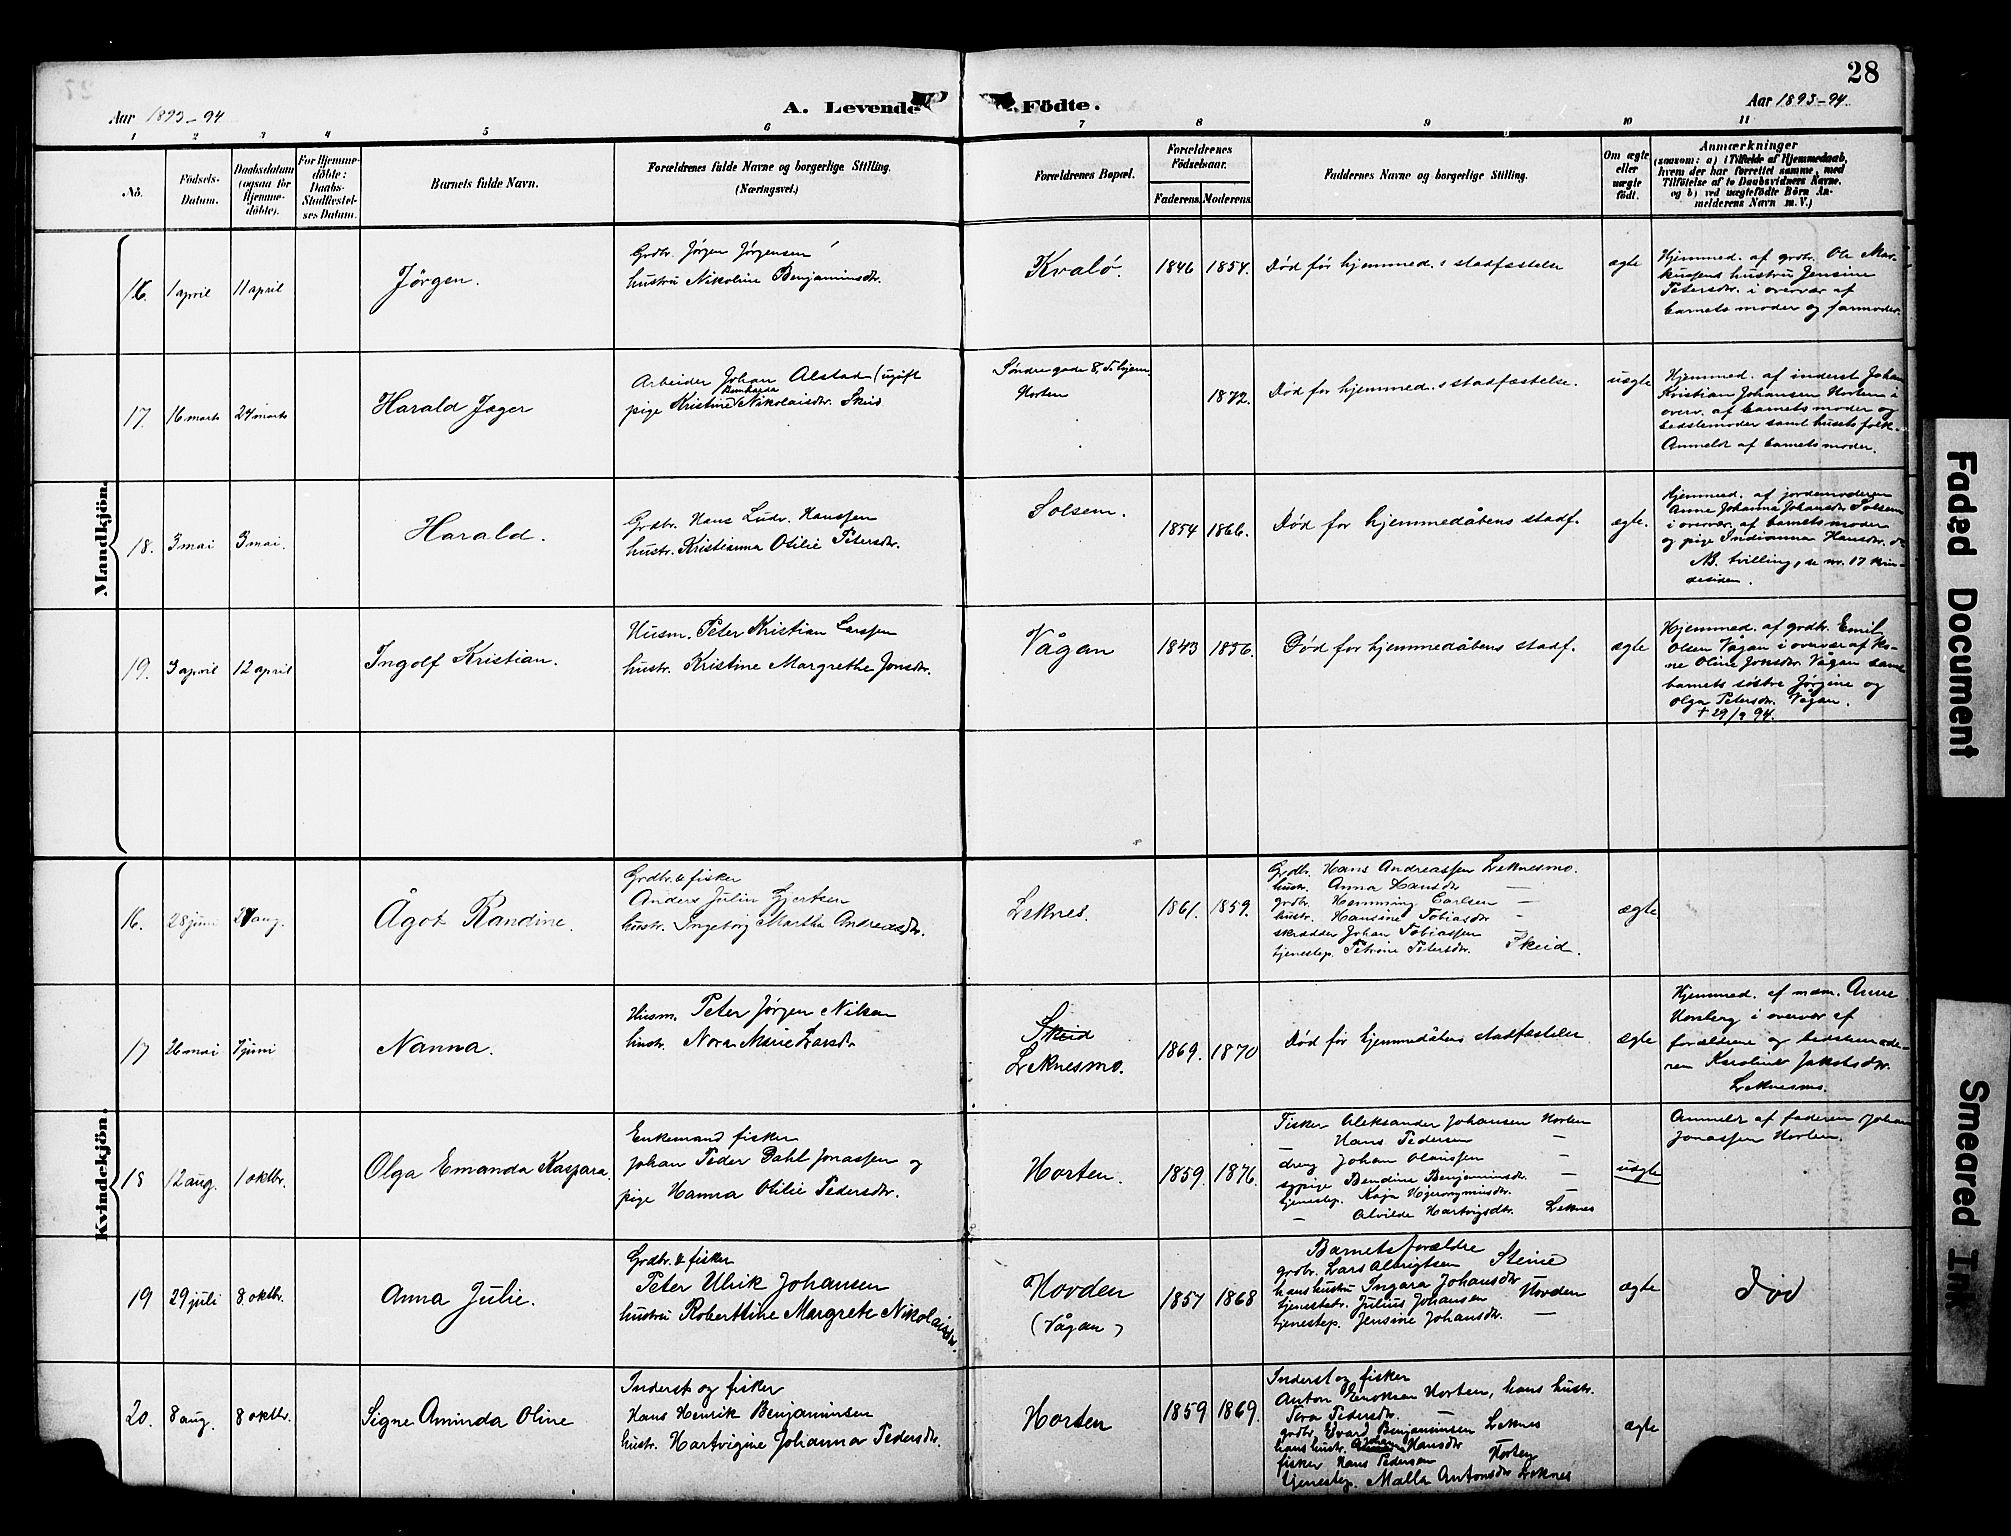 28
Aar 1893-94
A. Levende Födte.
Aar 1893-94.
1 2 3 4 5 6 7 8 9 10 11
No.
Födsels-
Datum.
Daabsdatum
(ogsaa for
Hjemme-
döbte).
For Hjemme-
döbte:
Daabs-
Stadfæstel-
ses Datum.
Barnets fulde Navn.
Forældrenes fulde Navne og borgerlige Stilling.
(Næringsvei.)
Forældrenes Bopæl.
Forældrenes
Födselsaar.
Faderens. Moderens.
Faddernes Navne og borgerlige Stilling.
Om ægte
eller
uægte
födt.
Anmærkninger
(saasom: a) i Tilfælde af Hjemmedaab,
hvem der har forrettet samme, med
Tilföielse af to Daabsvidners Navne,
og b) ved uægtefödte Börn An-
melderens Navn m. V.)
Mandkjön.
16. 1 april 11 april
Jörgen.
Grdbr. Jørgen Jørgensen
hustru Nikoline Benjaminsdtr.
Kvalö.
1846 1854.
Död før hjemmed. s stadfæstelse
ægte
Hjemmed. af grdbr. Ole Mar-
kussens hustru Jensine
Petersdtr. i overvær af
barnets moder og farmoder.
17. 16 marts 24 marts
Harald Jæger
Arbeider Johan Alstad (ugift
pige Kristine Nikolaisdtr. Skeid
Søndre gade 8, Tr.hjem
Horten
1872.
Død for hjemmed. s stadfæstelse.
uægte
Hjemmed. af inderst Johan
Kristian Johansen Horten i
overv. af barnets moder og
bedstemoder samt husets folk.
Anmeldt af barnets moder.
18. 3 mai 3 mai.
Harald.
Grdbr. Hans Ludv. Hanssen
hustr. Kristianna Otilie Petersdtr.
Solsem.
1854 1866.
Død for hjemmedåbens stadf.
ægte.
Hjemmed. af jordemoderen
Anne Johanna Johansdtr Solsem
i overvær af barnets moder
og pige Indianna Hansdtr.
NB. tvilling, se nr. 17 kvin-
desiden.
19. 3 april 12 april
Ingolf Kristian.
Husm. Peter Kristian Larssen
hustr. Kristine Margrethe Jonsdtr.
Vågan
1843 1856.
Død for hjemmedåbens stadf.
ægte
Hjemmed. af grdbr. Emil
Olsen Vågan i overvær af ko-
ne Oline Jonsdtr Vågan samt
barnets søstre Jørgine og
Olga Petersdtr. Vågan.
+ 29/9 94.
Kvindekjön.
16. 28 juni 27 aug.
Ågot Randine.
Grdbr. & fisker
Anders Julin Gjertsen
hustr. Ingeborg Martha Andreasdtr.
Leknes.
1861. 1859.
Grdbr. Hans Andreassen Leknesmo.
hustr. Anna Hansdtr —
grdbr. Hemming Carlsen —
hustr. Hansine Tobiasdtr -
skrædder Johan Tobiassen
tjenestep. Petrine Petersdtr. Skeid.
ægte
17 26 mai 7 juni
Nanna.
Husm. Peter Jørgen Nilsen
hustr. Nora Marie Larsdtr
Skeid
Leknesmo.
1869. 1870
Død før hjemmedåbens stadfæstelse
ægte
Hjemmed. af mdm. Anne
Horsberg i overvær af
forældrene og bedstemode-
ren Karoline Jakobsdtr.
Leknesmo.
18 12 aug. 1 oktbr.
Olga Emanda Kaspara.
Enkemand fisker
Johan Peder Dahl Jonassen og
pige Hanna Otilie Pedersdtr.
Horten.
1859. 1876.
Fisker Aleksander Johansen Horten
— Hans Pedersen —
dreng Johan Olaussen —
sypige Bendine Benjaminsdtr. —
tjenestep. Kaja Hjeronymusdtr. —
— Alvilde Hartvigsdtr. Leknes
uægte
Anmeldt af faderen Johan
Jonassen Horten.
19 29 juli 8 oktbr.
Anna Julie.
Grdbr. & fisker
Peter Ulrik Johansen
hustru Roberttine Margrete Nikolaisdtr.
Hovden
(Vågan)
1857 1868
Barnets forældre
grdbr. Lars Albrigtsen Steine
hans hustru Ingara Johansdtr
tjenestedr. Julius Johansen Hovden
tjenestep. Jensine Johansdtr. —
ægte
Död
20. 8 aug. 8 oktbr.
Signe Aminda Oline
Inderst og fisker
Hans Henrik Benjaminsen
hustr. Hartvigine Johanna Pedersdtr.
Horten
1859 1869.
Inderst og fisker
Anton Eriksen Horten, hans hustr.
Tora Pedersdtr. —
grdbr. Edvard Benjaminsen Leknes
hans hustr. Hansdtr
fisker Hans Pedersen Horten
tjenestep. Malla Antonsdtr Leknes
ægte
Faded Document
Smeared Ink